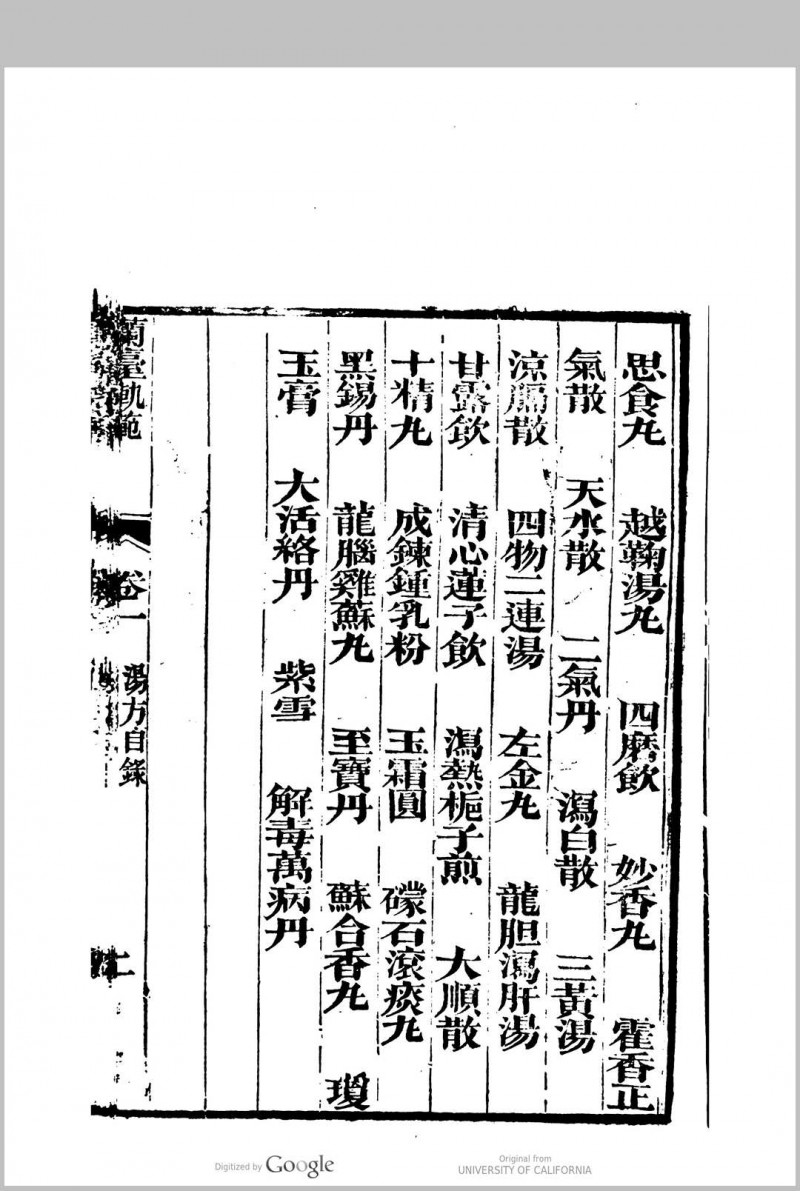 思食丸　越鞠湯丸　四磨飲　妙香丸　霍香正
氣散　天水散　二氣丹　瀉白散　三黃湯
涼膈散　四物二連湯　左金丸　龍胆瀉肝湯
甘露飲　清心蓮子飲　瀉熱梔子煎　大順散
十精丸　成鍊鍾乳粉　玉霜圓　礞石滾痰丸
黑錫丹　龍腦雞蘇丸　至寶丹　蘇合香丸　瓊
玉膏　大活絡丹　紫雪　解毒萬病丹
蘭臺軌範　卷一　湯方目錄　二
Digitized by Google
Original from
UNIVERSITY OF CALIFORNIA